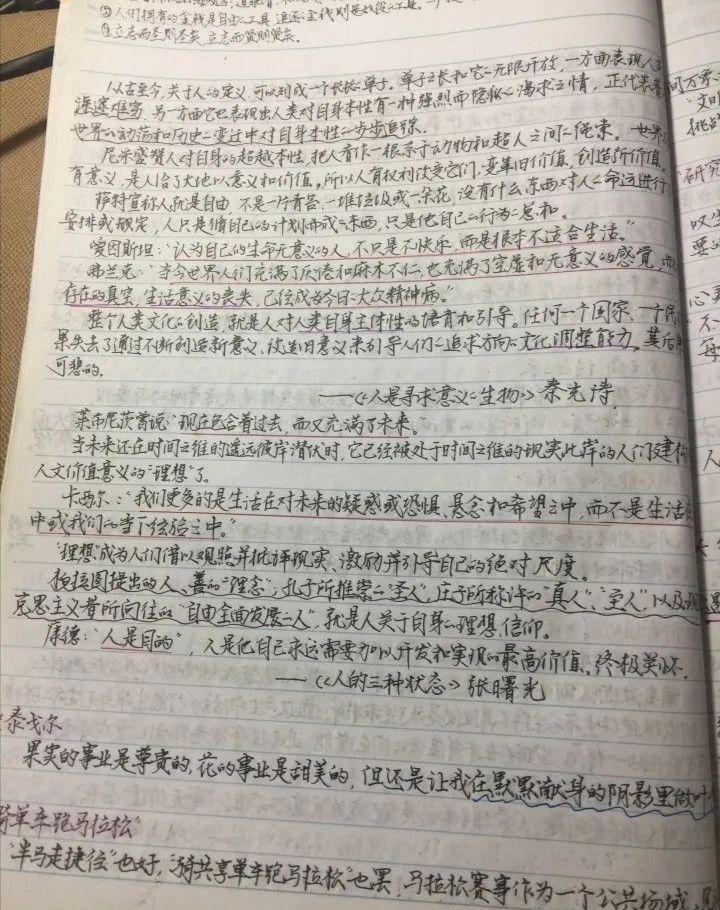 ②人们拥有的金钱是自由之工具
③立志而圣则圣矣,立志而贤则贤矣。
从古至今,关于人的定义,可以列成一个长长之单子。单子之长和它之无限开放,一方面表现人
深邃难窥,另一方面它也表现出人类对自身本性有一种强烈而隐秘之渴求之情,正代表着
世界之动荡和历史之变迁中对自身本性之步步追踪。
尼采盛赞人对自身的超越本性,把人看作一根系于动物和超人之间之绳索。世界
有意义,是人给了大地以意义和价值。所以人有权利改变它们,变革旧价值,创造新价值。
萨特宣称人就是自由,不是一片青苔、一堆垃圾或一朵花,没有什么东西对人之命运进行
安排或规定,人只是循自己的计划而成之东西,只是他自己之行为之总和。
爱因斯坦:“认为自己的生命无意义的人,不只是不快乐,而是根本不适合生活。”
弗兰克:“当今世界人们充满了厌倦和麻木不仁,也充满了空虚和无意义的感觉,
存在的真空,生活意义的丧失,已经成为今日之大众精神病。”
整个人类文化之创造,就是人对人类自身主体性的培育和引导。任何一个国家、一个民
果失去了通过不断创造新意义、改造旧意义来引导人们之追求方向之文化调整能力,其后果
可悲的。
——《人是寻求意义之生物》秦光涛
莱布尼茨曾说:“现在包含着过去,而又充满了未来。”
当未来还在时间之维的遥远彼岸潜伏时,它已经被处于时间之维的现实此岸的人们建构
人文价值意义的“理想”了。
卡西尔:“我们更多的是生活在对未来的疑惑或恐惧、悬念和希望之中,而不是生活在
中或我们的当下经验之中。”
“理想”成为人们借以观照并批评现实、激励并引导自己的绝对尺度。
柏拉图提出的人、善的“理念”,孔子所推崇之“圣人”,庄子所称许的“真人”、“至人”以及
克思主义者所向往的“自由全面发展之人”,就是人关于自身之理想、信仰。
康德:“人是目的”,人是他自己永远需要加以开发和实现的最高价值、终极关怀。
——《人的三种状态》张曙光
泰戈尔
果实的事业是尊贵的,花的事业是甜美的,但还是让我在默默献身的阴影里做叶
骑单车跑马拉松”
“半马走捷径”也好,“骑共享单车跑马拉松”也罢,马拉松赛事作为一个公共场域,